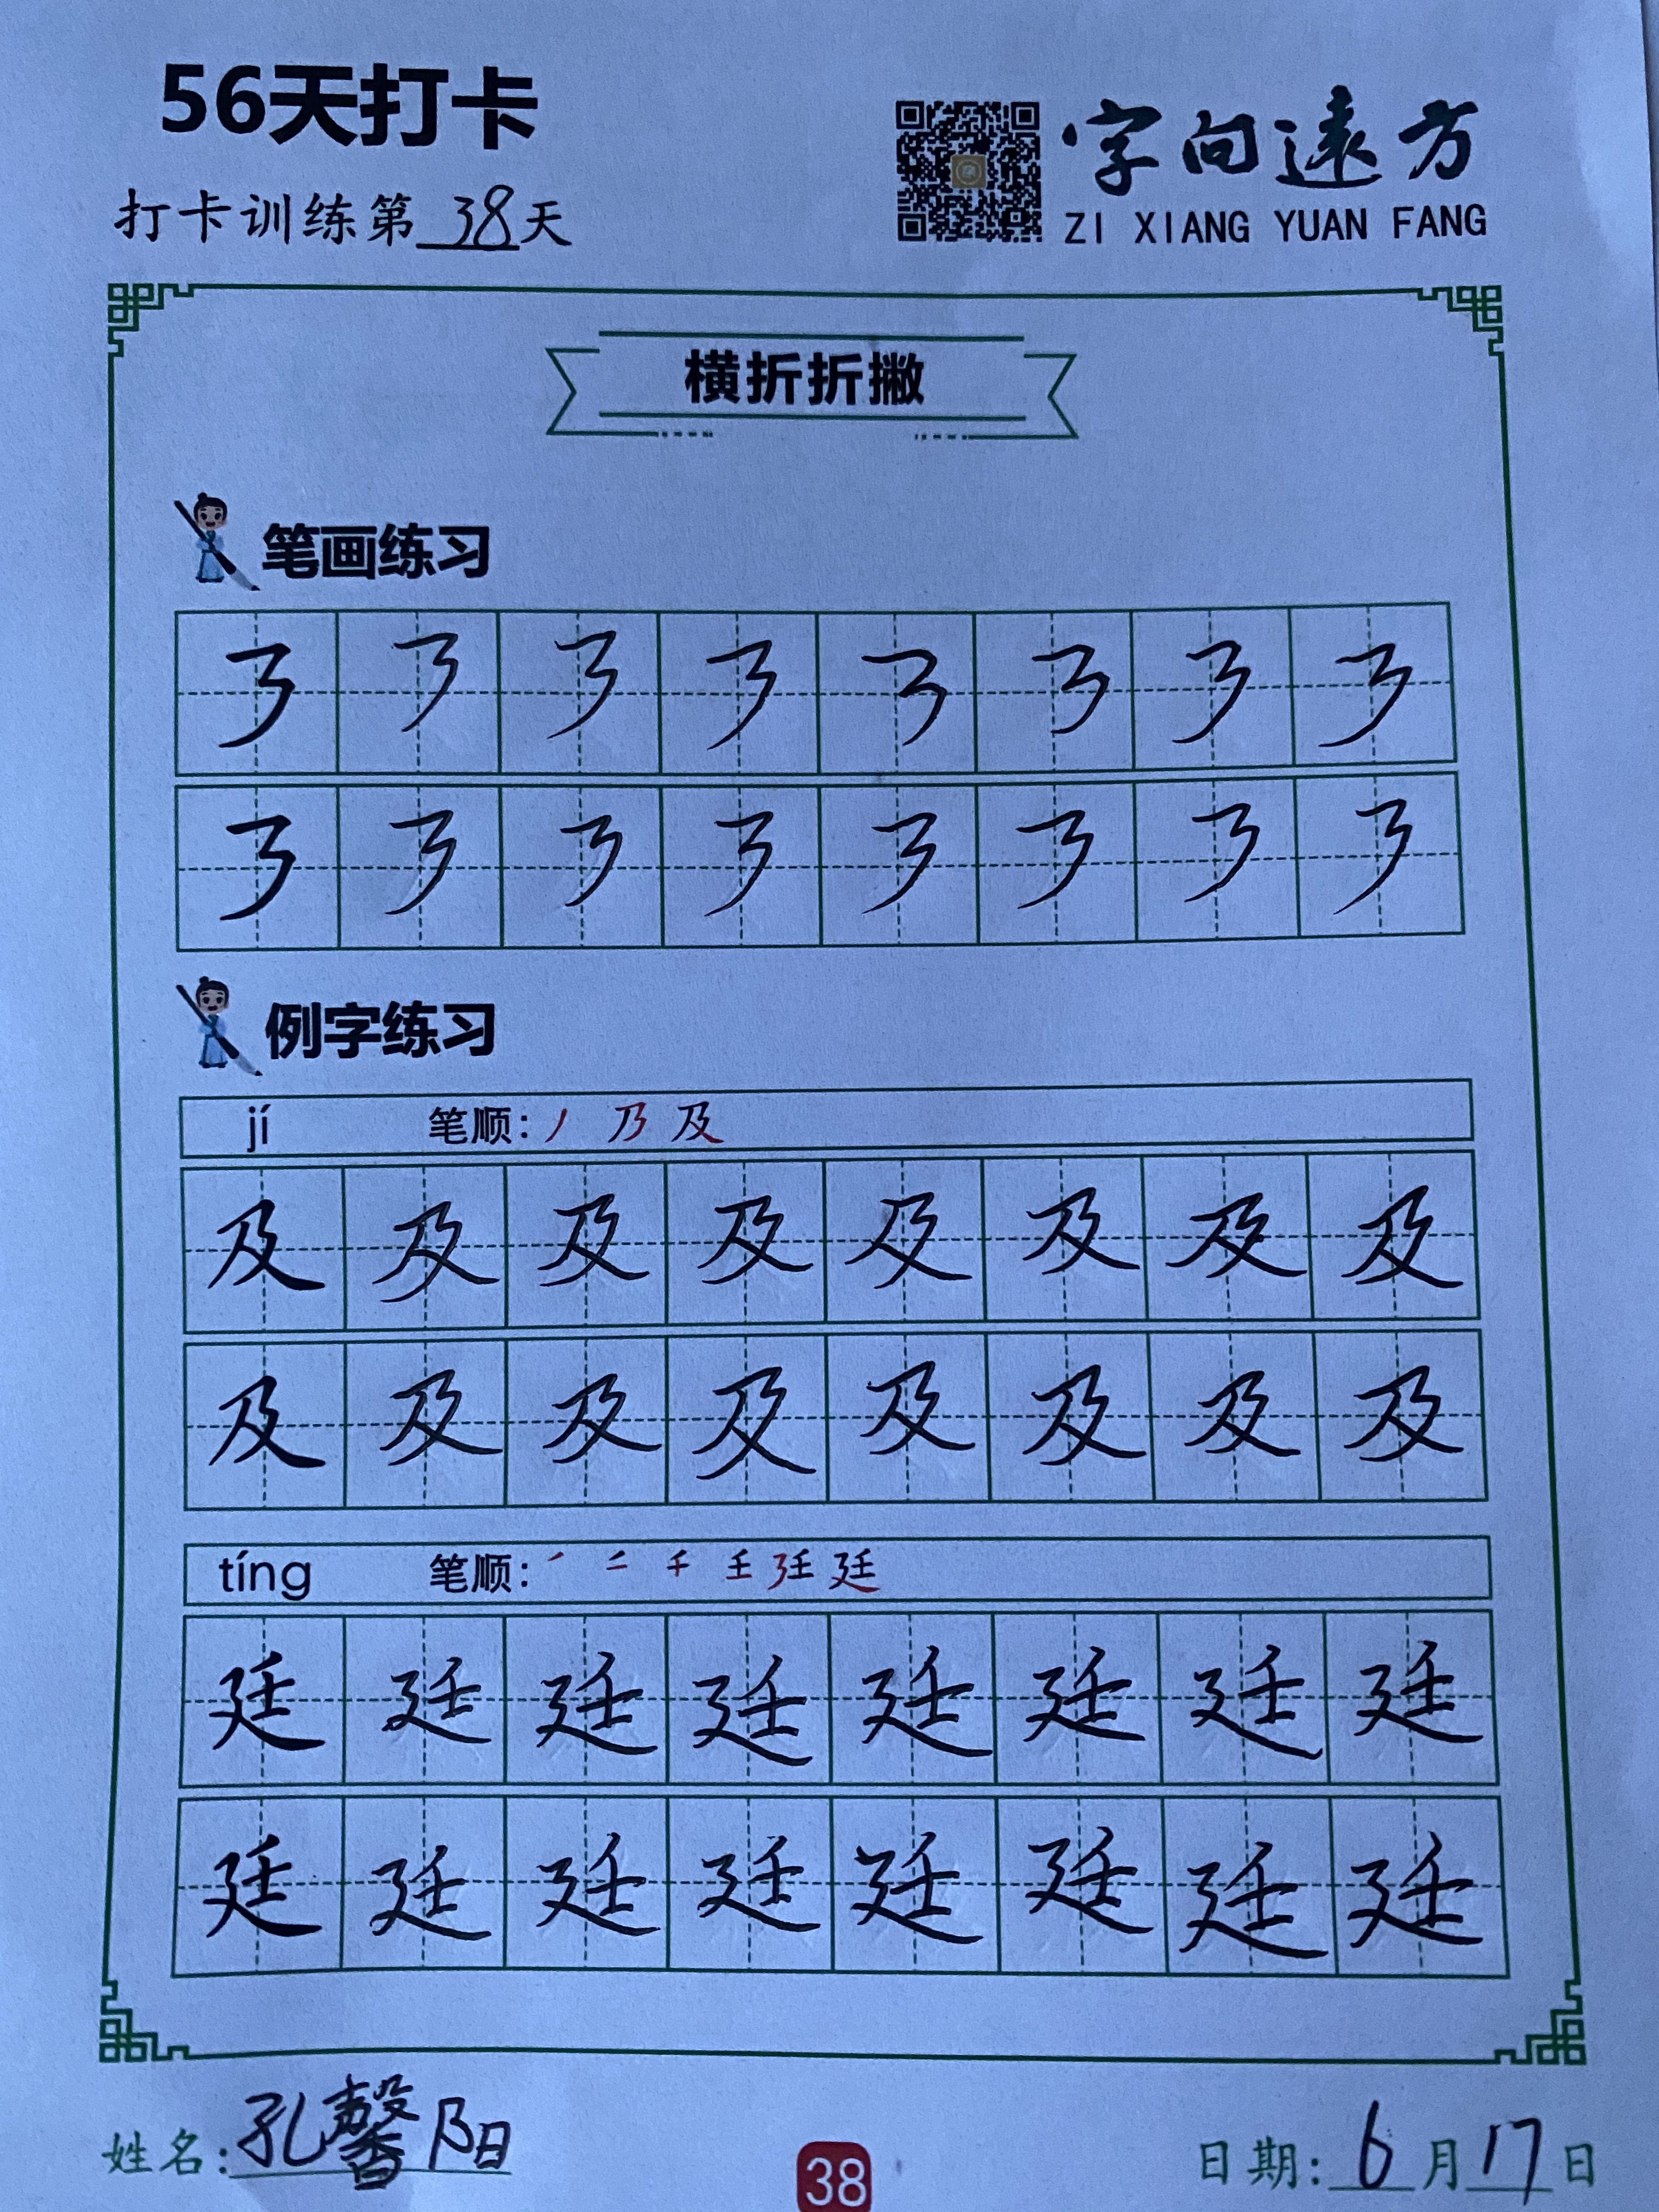 56天打卡
字向遠方
打卡训练第38天
ZI XIANG YUAN FANG
横折折撇
笔画练习
㇋ ㇋ ㇋ ㇋ ㇋ ㇋ ㇋ ㇋
㇋ ㇋ ㇋ ㇋ ㇋ ㇋ ㇋ ㇋
例字练习
jí 笔顺：丿 乃 及
及 及 及 及 及 及 及 及
及 及 及 及 及 及 及 及
tíng 笔顺：
廷 廷 廷 廷 廷 廷 廷 廷
廷 廷 廷 廷 廷 廷 廷 廷
姓名：孔馨阳
38
日期：6月17日